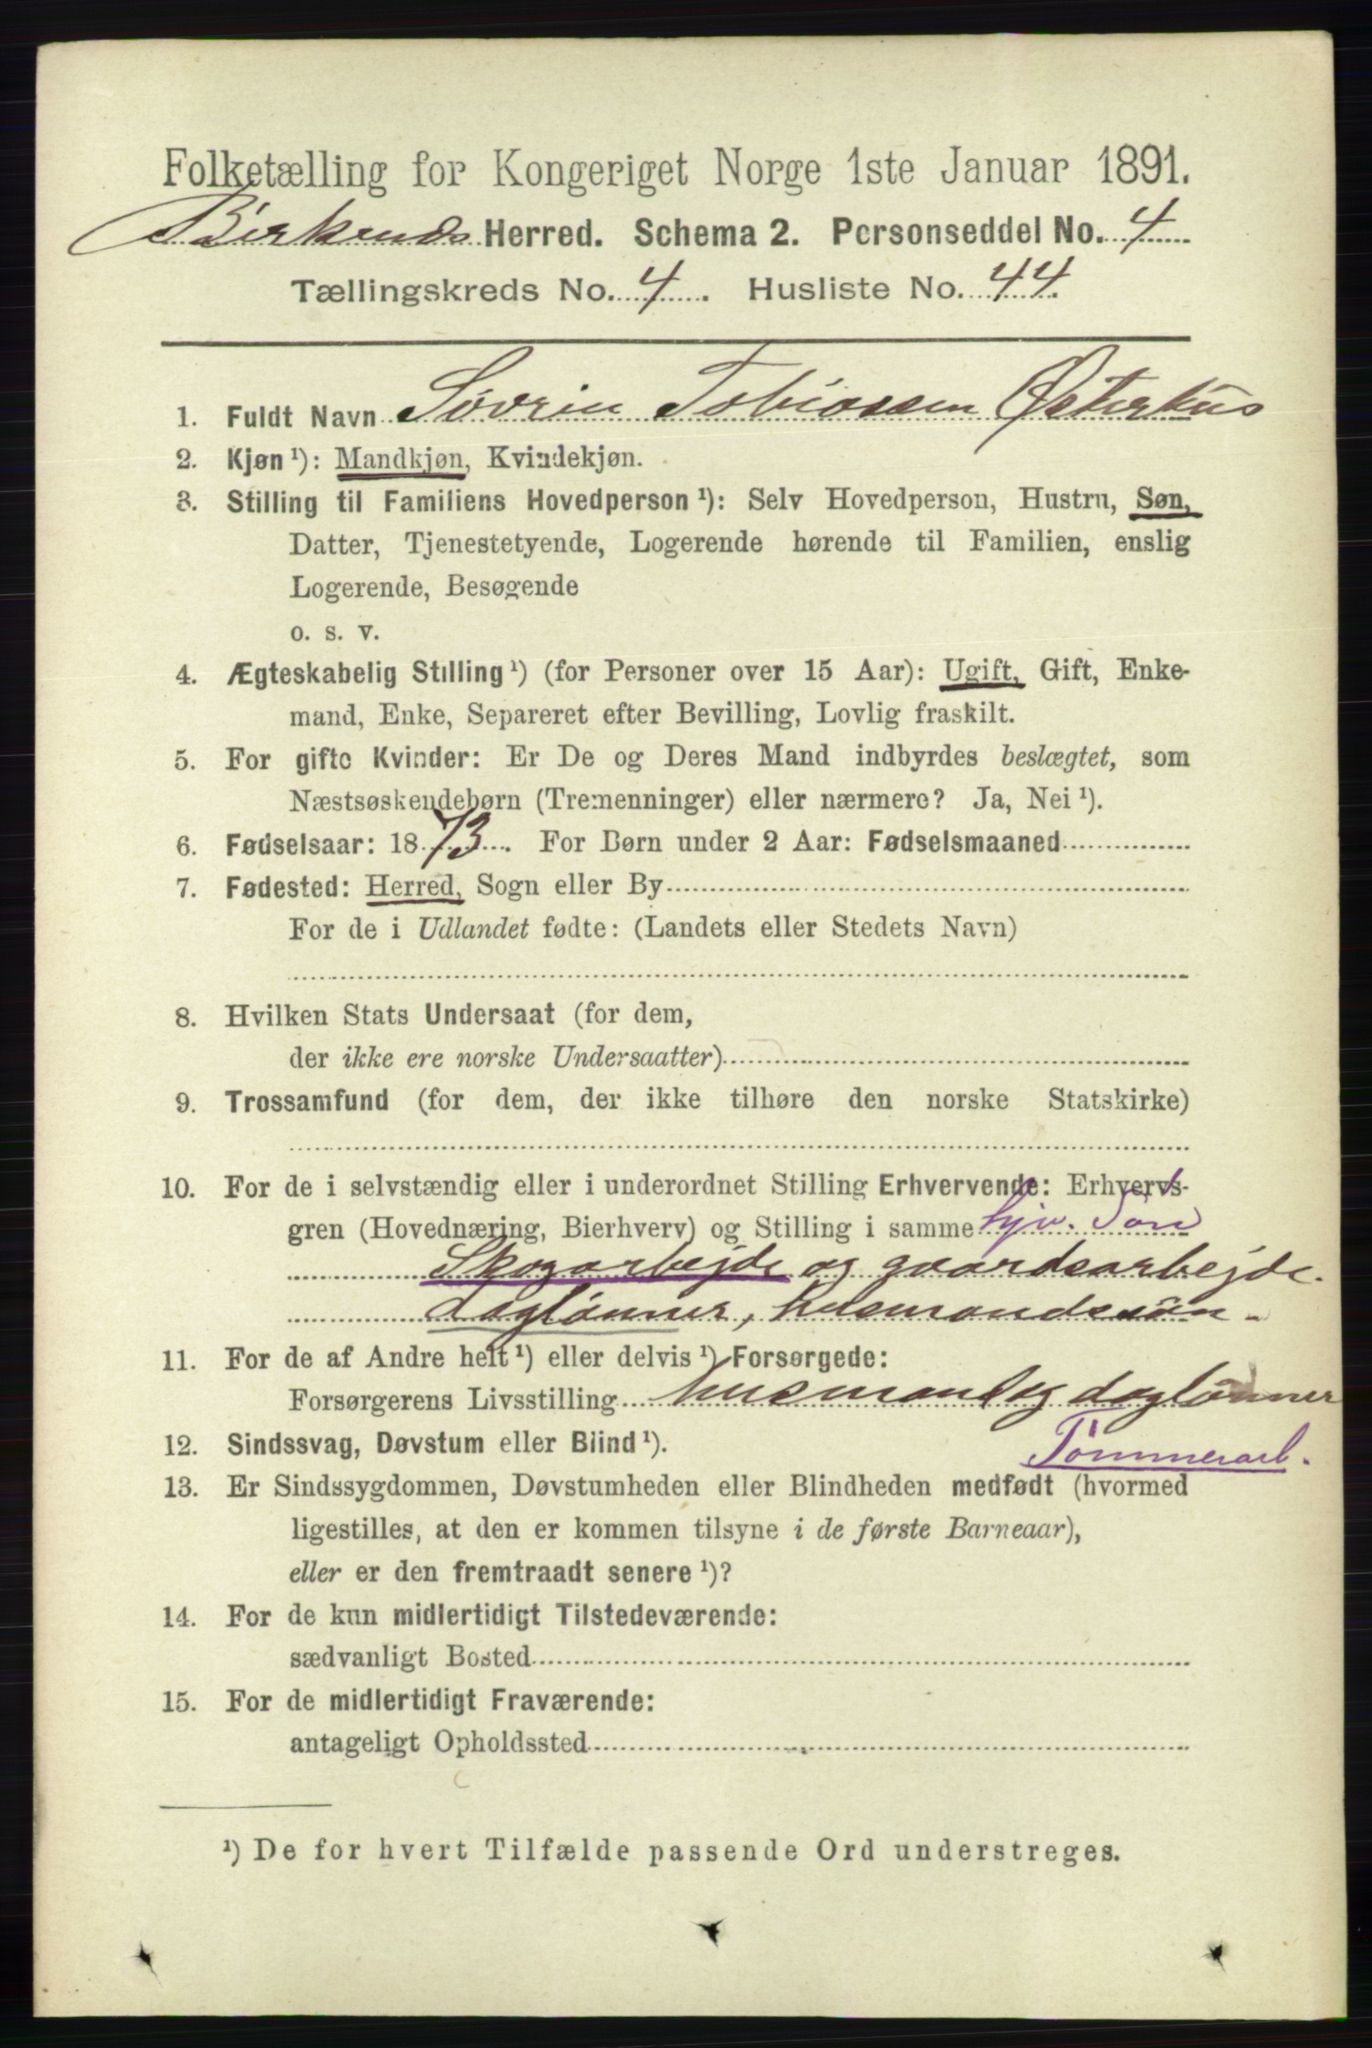 Folketælling for Kongeriget Norge 1ste Januar 1891.
Birkenæs Herred. Schema 2. Personseddel No. 4
Tællingskreds No. 4. Husliste No. 44.
1. Fuldt Navn Søvrin Tobiassen Østerhus
2. Kjøn¹): Mandkjøn, Kvindekjøn.
3. Stilling til Familiens Hovedperson¹): Selv Hovedperson, Hustru, Søn,
Datter, Tjenestetyende, Logerende hørende til Familien, enslig
Logerende, Besøgende
o. s. v.
4. Ægteskabelig Stilling¹) (for Personer over 15 Aar): Ugift, Gift, Enke-
mand, Enke, Separeret efter Bevilling, Lovlig fraskilt.
5. For gifte Kvinder: Er De og Deres Mand indbyrdes beslægtet, som
Næstsøskendebørn (Tremenninger) eller nærmere? Ja, Nei¹).
6. Fødselsaar: 1873. For Børn under 2 Aar: Fødselsmaaned
7. Fødested: Herred, Sogn eller By
For de i Udlandet fødte: (Landets eller Stedets Navn)
8. Hvilken Stats Undersaat (for dem,
der ikke ere norske Undersaatter)
9. Trossamfund (for dem, der ikke tilhøre den norske Statskirke)
10. For de i selvstændig eller i underordnet Stilling Erhvervende: Erhvervs-
gren (Hovednæring, Bierhverv) og Stilling i samme hjv. Søn
Skogarbejde og gaardsarbejde.
daglønner, husmandssøn.
11. For de af Andre helt¹) eller delvis¹) Forsørgede:
Forsørgerens Livsstilling husmand og daglønner
12. Sindssvag, Døvstum eller Blind¹). Tømmerarb.
13. Er Sindssygdommen, Døvstumheden eller Blindheden medfødt (hvormed
ligestilles, at den er kommen tilsyne i de første Barneaar),
eller er den fremtraadt senere¹)?
14. For de kun midlertidigt Tilstedeværende:
sædvanligt Bosted
15. For de midlertidigt Fraværende:
antageligt Opholdssted
¹) De for hvert Tilfælde passende Ord understreges.